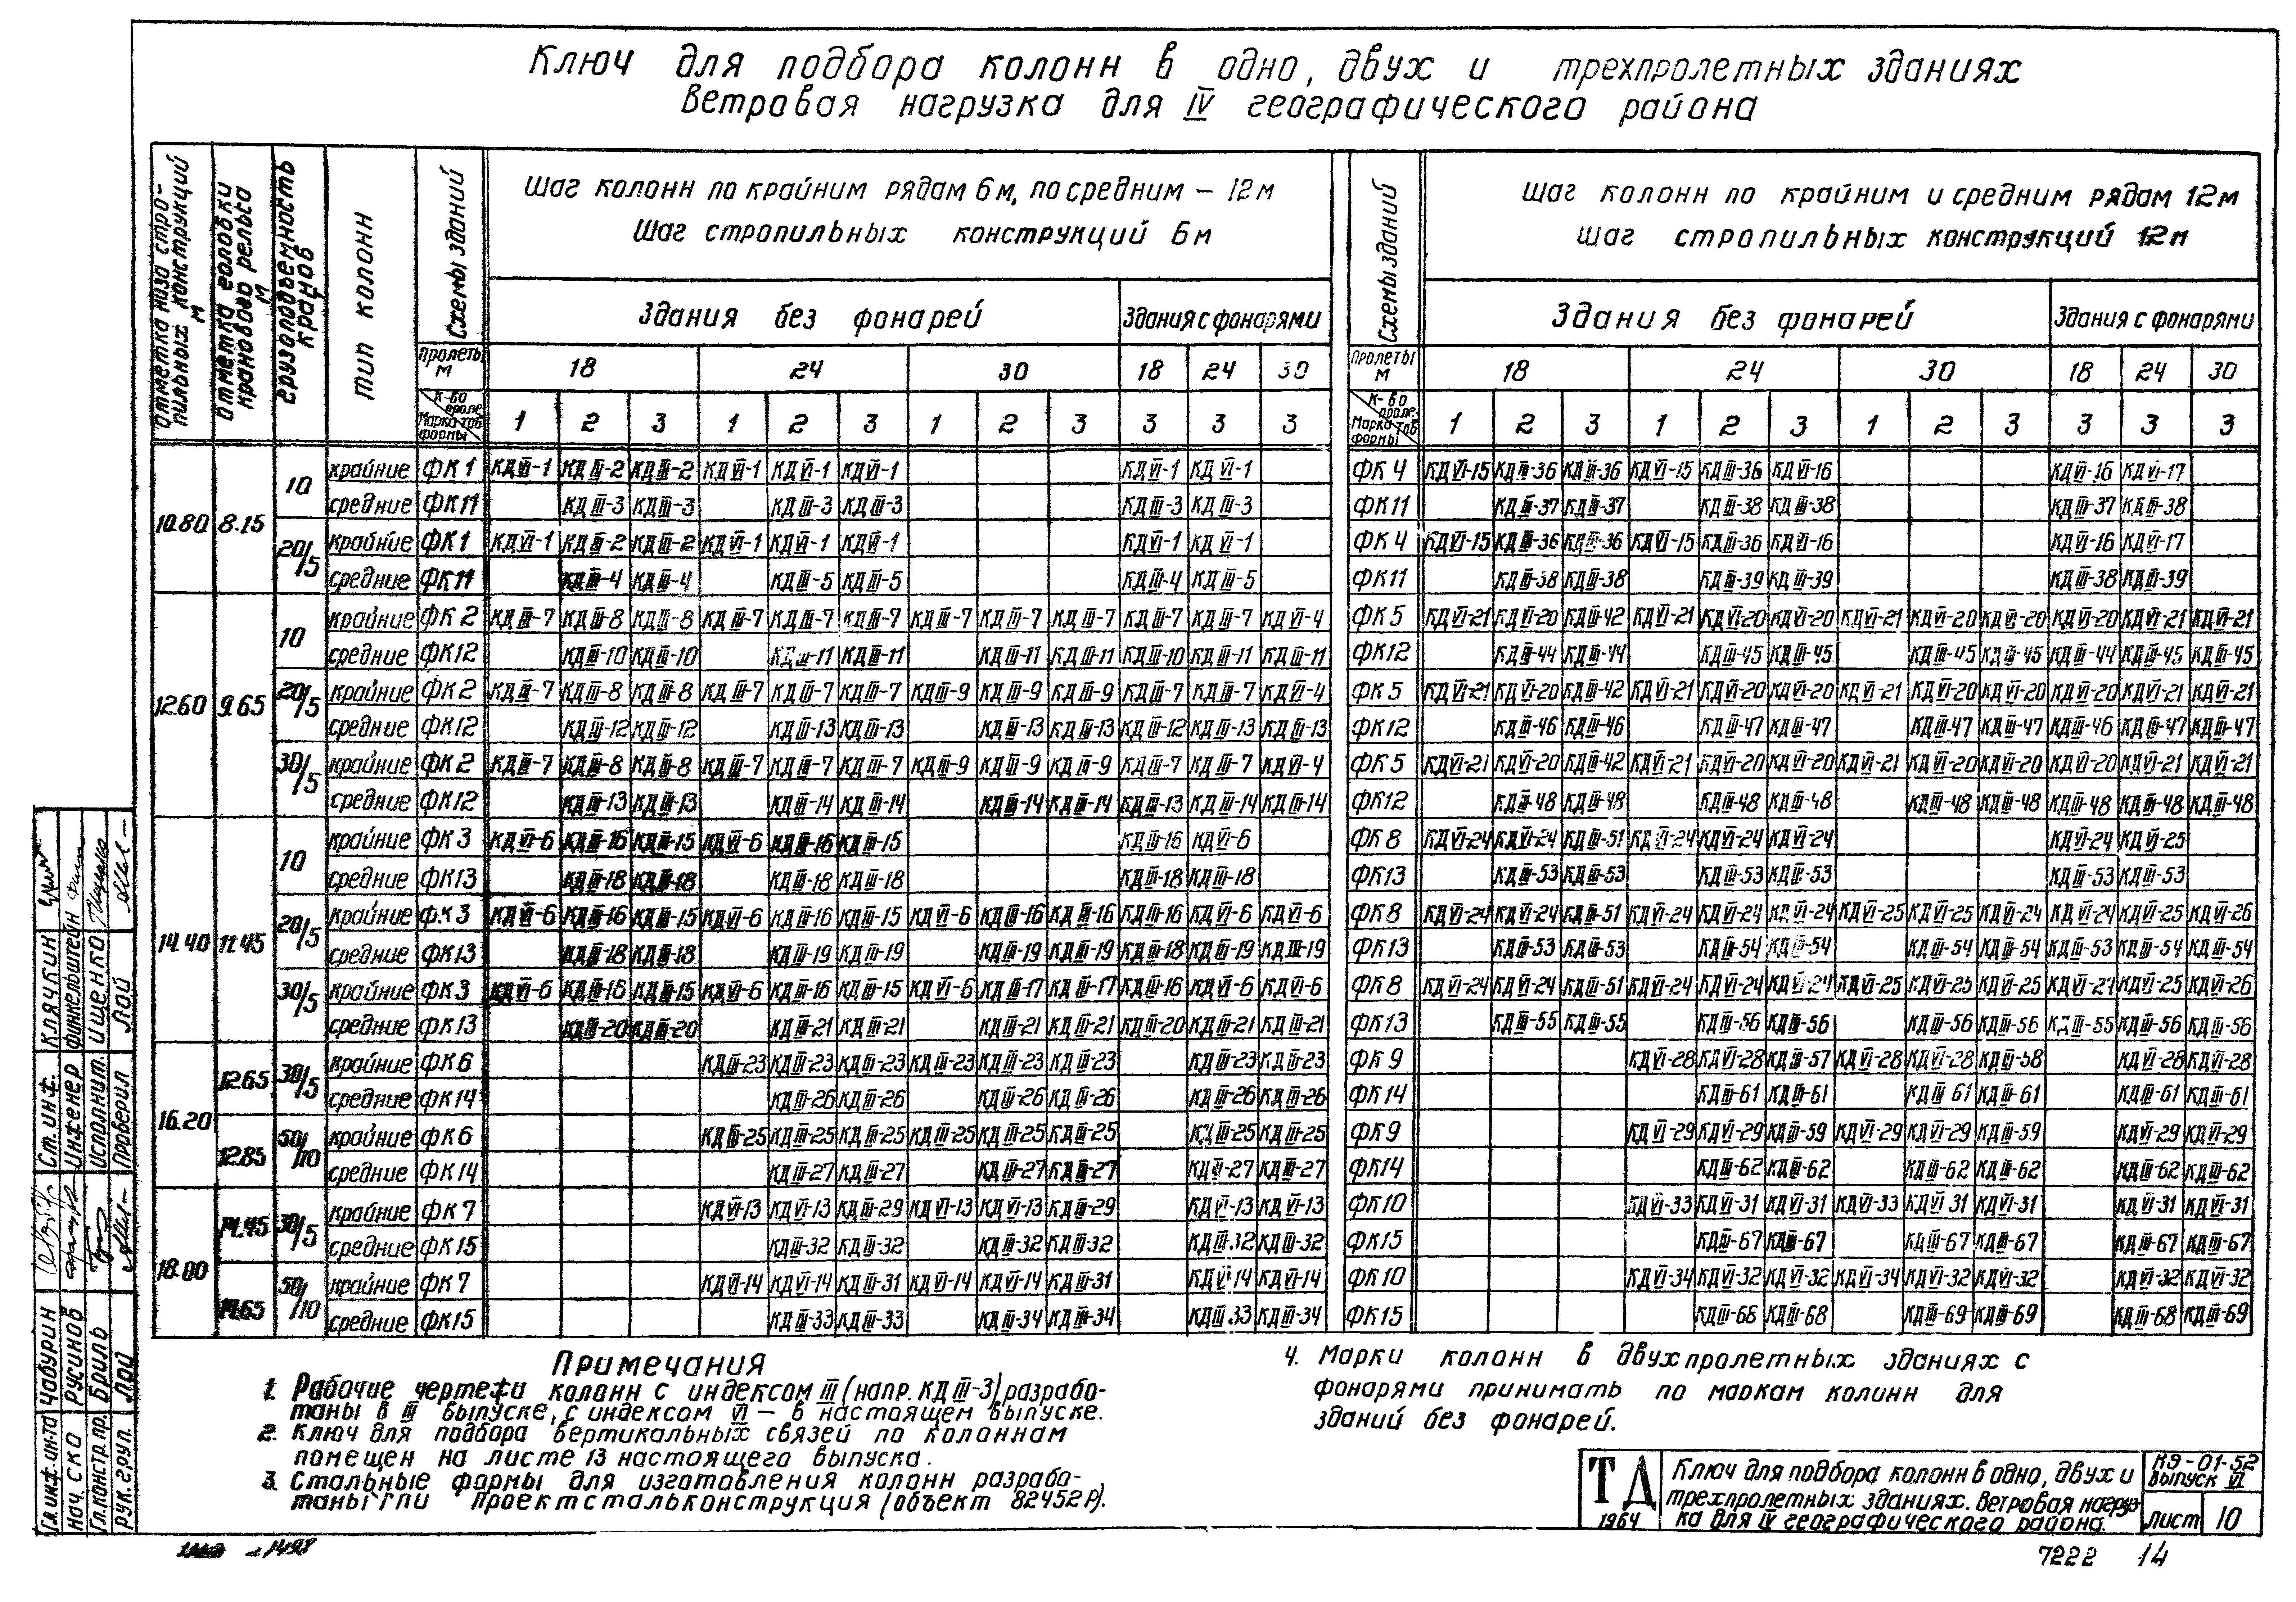 Ключ для подбора колонн в одно, двух и трехпролетных зданиях
Ветровая нагрузка для IV географического района
Отметка низа стро-
пильных конструкций
м
Отметка головки
кранового рельса
м
Грузоподъемность
кранов
Тип колонн
Схемы зданий
Шаг колонн по крайним рядам 6м, по средним – 12м
Шаг стропильных конструкций 6м
Схемы зданий
Шаг колонн по крайним и средним рядам 12м
шаг стропильных конструкций 12м
Здания без фонарей Здания с фонарями Здания без фонарей Здания с фонарями
Пролеты м 18 24 30 18 24 30 Пролеты м 18 24 30 18 24 30
К-во пролетов Марка формы 1 2 3 1 2 3 1 2 3 3 3 3 К-во пролетов Марка формы 1 2 3 1 2 3 1 2 3 3 3 3
10.80 8.15 10 крайние ФК1 КДVI-1 КДIII-2 КДIII-2 КДVI-1 КДVI-1 КДVI-1 КДVI-1 КДVI-1 ФК4 КДVI-15 КДIII-36 КДIII-36 КДVI-15 КДIII-36 КДVI-16 КДVI-16 КДVI-17
средние ФК11 КДIII-3 КДIII-3 КДIII-3 КДIII-3 КДIII-3 КДIII-3 ФК11 КДIII-37 КДIII-37 КДIII-38 КДIII-38 КДIII-37 КДIII-38
20/5 крайние ФК1 КДVI-1 КДIII-2 КДIII-2 КДVI-1 КДVI-1 КДVI-1 КДVI-1 КДVI-1 ФК4 КДVI-15 КДIII-36 КДIII-36 КДVI-15 КДIII-36 КДVI-16 КДVI-16 КДVI-17
средние ФК11 КДIII-4 КДIII-4 КДIII-5 КДIII-5 КДIII-4 КДIII-5 ФК11 КДIII-38 КДIII-38 КДIII-39 КДIII-39 КДIII-38 КДIII-39
12.60 9.65 10 крайние ФК2 КДIII-7 КДIII-8 КДIII-8 КДIII-7 КДIII-7 КДIII-7 КДIII-7 КДIII-7 КДIII-7 КДIII-7 КДIII-7 КДVI-4 ФК5 КДVI-21 КДVI-20 КДIII-42 КДVI-21 КДVI-20 КДVI-20 КДVI-21 КДVI-20 КДVI-20 КДVI-20 КДVI-21 КДVI-21
средние ФК12 КДIII-10 КДIII-10 КДIII-11 КДIII-11 КДIII-11 КДIII-11 КДIII-10 КДIII-11 КДIII-11 ФК12 КДIII-44 КДIII-44 КДIII-45 КДIII-45 КДIII-45 КДIII-45 КДIII-44 КДIII-45 КДIII-45
20/5 крайние ФК2 КДIII-7 КДIII-8 КДIII-8 КДIII-7 КДIII-7 КДIII-7 КДIII-9 КДIII-9 КДIII-9 КДIII-7 КДIII-7 КДVI-4 ФК5 КДVI-21 КДVI-20 КДIII-42 КДVI-21 КДVI-20 КДVI-20 КДVI-21 КДVI-20 КДVI-20 КДVI-20 КДVI-21 КДVI-21
средние ФК12 КДIII-12 КДIII-12 КДIII-13 КДIII-13 КДIII-13 КДIII-13 КДIII-12 КДIII-13 КДIII-13 ФК12 КДIII-46 КДIII-46 КДIII-47 КДIII-47 КДIII-47 КДIII-47 КДIII-46 КДIII-47 КДIII-47
30/5 крайние ФК2 КДIII-7 КДIII-8 КДIII-8 КДIII-7 КДIII-7 КДIII-7 КДIII-9 КДIII-9 КДIII-9 КДIII-7 КДIII-7 КДVI-4 ФК5 КДVI-21 КДVI-20 КДIII-42 КДVI-21 КДVI-20 КДVI-20 КДVI-21 КДVI-20 КДVI-20 КДVI-20 КДVI-21 КДVI-21
средние ФК12 КДIII-13 КДIII-13 КДIII-14 КДIII-14 КДIII-14 КДIII-14 КДIII-13 КДIII-14 КДIII-14 ФК12 КДIII-48 КДIII-48 КДIII-48 КДIII-48 КДIII-48 КДIII-48 КДIII-48 КДIII-48 КДIII-48
14.40 11.45 10 крайние ФК3 КДVI-6 КДIII-16 КДIII-15 КДVI-6 КДIII-16 КДIII-15 КДIII-16 КДVI-6 ФК8 КДVI-24 КДVI-24 КДIII-51 КДVI-24 КДVI-24 КДVI-24 КДVI-24 КДVI-25
средние ФК13 КДIII-18 КДIII-18 КДIII-18 КДIII-18 КДIII-18 КДIII-18 ФК13 КДIII-53 КДIII-53 КДIII-53 КДIII-53 КДIII-53 КДIII-53
20/5 крайние ФК3 КДVI-6 КДIII-16 КДIII-15 КДVI-6 КДIII-16 КДIII-15 КДVI-6 КДIII-16 КДIII-16 КДIII-16 КДVI-6 КДVI-6 ФК8 КДVI-24 КДVI-24 КДIII-51 КДVI-24 КДVI-24 КДVI-24 КДVI-25 КДVI-25 КДVI-24 КДVI-24 КДVI-25 КДVI-26
средние ФК13 КДIII-18 КДIII-18 КДIII-19 КДIII-19 КДIII-19 КДIII-19 КДIII-18 КДIII-19 КДIII-19 ФК13 КДIII-53 КДIII-53 КДIII-54 КДIII-54 КДIII-54 КДIII-54 КДIII-53 КДIII-54 КДIII-54
30/5 крайние ФК3 КДVI-6 КДIII-16 КДIII-15 КДVI-6 КДIII-16 КДIII-15 КДVI-6 КДIII-17 КДIII-17 КДIII-16 КДVI-6 КДVI-6 ФК8 КДVI-24 КДVI-24 КДIII-51 КДVI-24 КДVI-24 КДVI-24 КДVI-25 КДVI-25 КДVI-25 КДVI-24 КДVI-25 КДVI-26
средние ФК13 КДIII-20 КДIII-20 КДIII-21 КДIII-21 КДIII-21 КДIII-21 КДIII-20 КДIII-21 КДIII-21 ФК13 КДIII-55 КДIII-55 КДIII-56 КДIII-56 КДIII-56 КДIII-56 КДIII-55 КДIII-56 КДIII-56
16.20 12.65 30/5 крайние ФК6 КДIII-23 КДIII-23 КДIII-23 КДIII-23 КДIII-23 КДIII-23 КДIII-23 КДIII-23 ФК9 КДVI-28 КДVI-28 КДIII-57 КДVI-28 КДVI-28 КДIII-58 КДVI-28 КДVI-28
средние ФК14 КДIII-26 КДIII-26 КДIII-26 КДIII-26 КДIII-26 КДIII-26 ФК14 КДIII-61 КДIII-61 КДIII 61 КДIII-61 КДIII-61 КДIII-61
12.85 50/10 крайние ФК6 КДIII-25 КДIII-25 КДIII-25 КДIII-25 КДIII-25 КДIII-25 КДIII-25 КДIII-25 ФК9 КДVI-29 КДVI-29 КДIII-59 КДVI-29 КДVI-29 КДIII-59 КДVI-29 КДVI-29
средние ФК14 КДIII-27 КДIII-27 КДIII-27 КДIII-27 КДIII-27 КДIII-27 ФК14 КДIII-62 КДIII-62 КДIII-62 КДIII-62 КДIII-62 КДIII-62
18.00 14.45 30/5 крайние ФК7 КДVI-13 КДVI-13 КДIII-29 КДVI-13 КДVI-13 КДIII-29 КДVI-13 КДVI-13 ФК10 КДVI-33 КДVI-31 КДVI-31 КДVI-33 КДVI 31 КДVI-31 КДVI-31 КДVI-31
средние ФК15 КДIII-32 КДIII-32 КДIII-32 КДIII-32 КДIII-32 КДIII-32 ФК15 КДIII-67 КДIII-67 КДIII-67 КДIII-67 КДIII-67 КДIII-67
14.65 50/10 крайние ФК7 КДVI-14 КДVI-14 КДIII-31 КДVI-14 КДVI-14 КДIII-31 КДVI-14 КДVI-14 ФК10 КДVI-34 КДVI-32 КДVI-32 КДVI-34 КДVI-32 КДVI-32 КДVI-32 КДVI-32
средние ФК15 КДIII-33 КДIII-33 КДIII-34 КДIII-34 КДIII-33 КДIII-34 ФК15 КДIII-68 КДIII-68 КДIII-69 КДIII-69 КДIII-68 КДIII-69
Примечания
1. Рабочие чертежи колонн с индексом III (напр. КДIII-3) разрабо-
таны в III выпуске, с индексом VI – в настоящем выпуске.
2. Ключ для подбора вертикальных связей по колоннам
помещен на листе 13 настоящего выпуска.
3. Стальные формы для изготовления колонн разрабо-
таны ГПИ Проектстальконструкция (объект 82452Р).
4. Марки колонн в двухпролетных зданиях с
фонарями принимать по маркам колонн для
зданий без фонарей.
ТД
1964
Ключ для подбора колонн в одно, двух и
трехпролетных зданиях. Ветровая нагруз-
ка для IV географического района.
КЭ-01-52
выпуск VI
Лист 10
7222 14
Гл. инж. ин-та Чабурин
Нач. СКО Русинов
Гл. констр. пр. Бриль
Рук. груп. Лой
Ст. инж. Клячкин
Инженер Финкельштейн
Исполнит. Ищенко
Проверил Лой